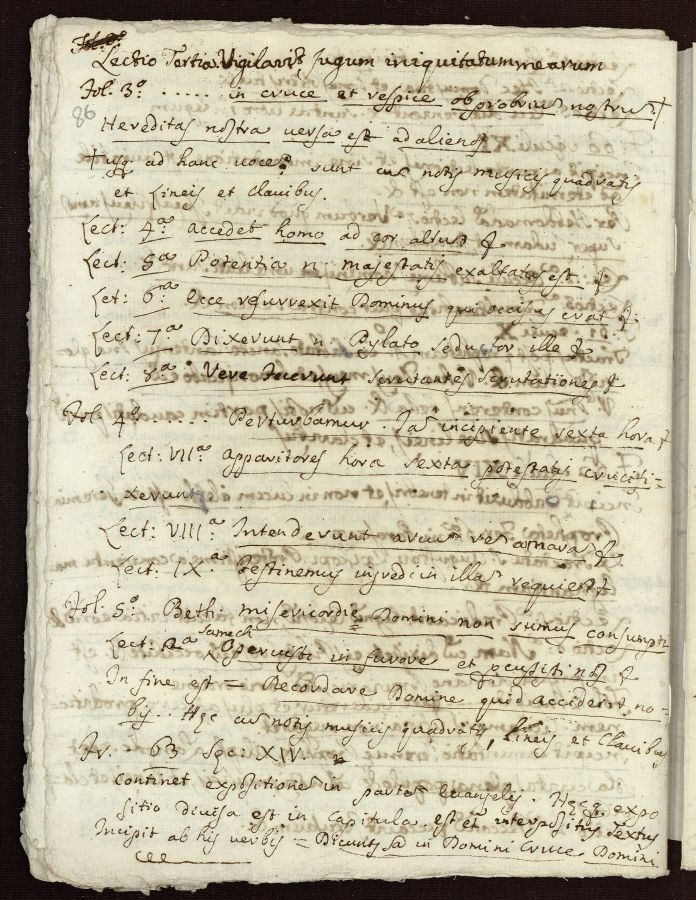 Lectio Tertia. Vigilavit Jugum iniquitatum mearum
Fol. 3º ..... in cruce et respice obprobriũ nostrũ
86
Hereditas nostra versa est ad alienos
usq ad hanc vocẽ sunt cũ notis musicis quadratis
et Lineis et Clavibus.
Lect: 4ª accedet homo ad cor altum &
Lect: 5ª Potentia n majestatis exaltatus est &
Let: 6ª Ecce resurrexit Dominus qui occisus erat &
Lect: 7ª Dixerunt n Pylato seductor ille &
Lect: 8ª Vere fecerunt scrutantes scrutationes &
Fol. 4º ..... Perturbamur. Jaˢ incipiente sexta hora &
Lect: VIIª apparitores hora sexta potestatis crucifi=
xerunt
Lect: VIIIª Intenderunt arcum rem amara &
Lect: IXª festinemus ingredi in illam requiem &
Fol. 5º. Beth. misericordie Domini non sumus consumpti
Samech
Lect: 2ª Operuisti in furore et pcussisti nos &
In fine est = Recordare Domine quid acciderit no-
bis. Hęc cũ notis musicis quadratis, Lineis et Clavibus
Fr. 63 Sęc: XIV
continet expositiones in partes Evangelii. Hęcq expo
sitio divisa est in capitula est et interpositus Textus
Incipit ab his verbis = in Domini Cruce Domini